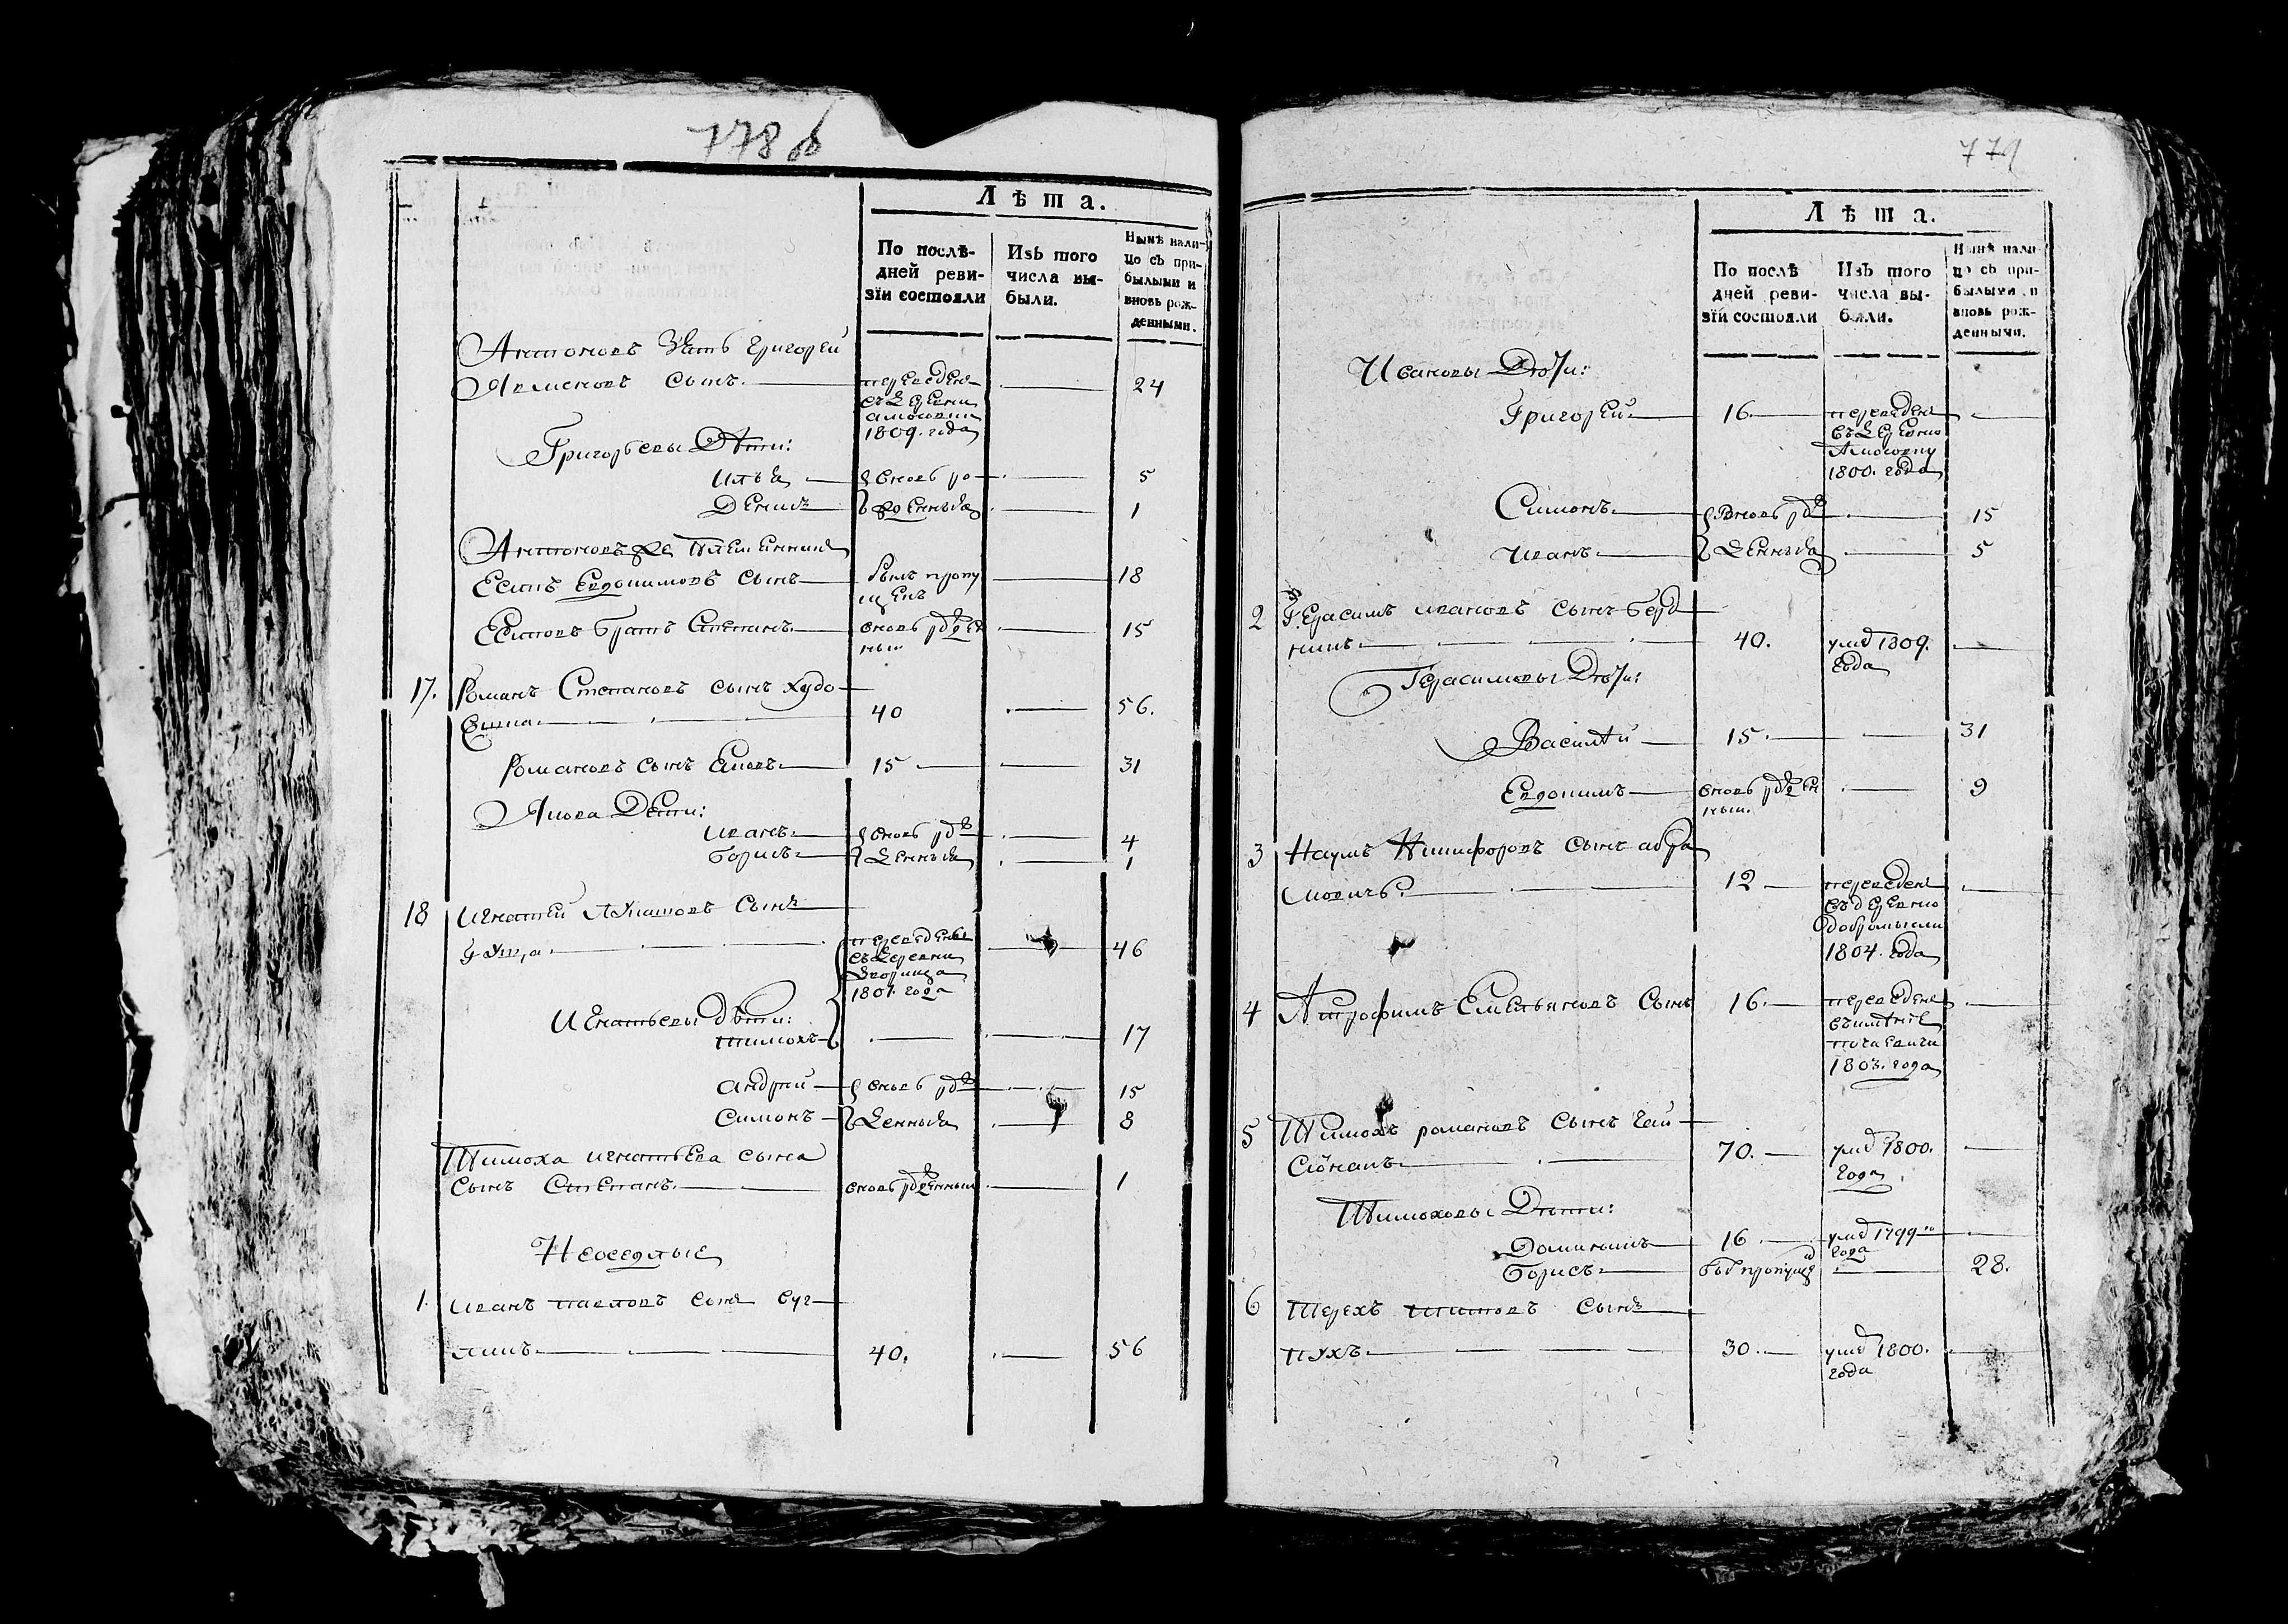 778 об
Лѣта.
По послѣ-
дней реви-
зїи состояли
Изъ того
числа вы-
были.
Нынѣ нали-
цо съ при-
былыми и
вновь рож-
денными.
Антоновъ Зять Григорей
сынъ переведенъ 24
съ деревни
1809. года
Григорьевы Дѣти:
Илья вновь ро 5
Денисъ жденныя 1
Антоновъ же племенникъ
Есипъ Евдокимовъ сынъ былъ пропу 18
щенъ
Есиповъ братъ Степанъ вновь рожден 15
ный
17. Романъ Степановъ сынъ Худо
40 56.
Романовъ сынъ 15 31
Дѣти:
Иванъ вновь рож 4
Борисъ денныя 1
18 Игнатей сынъ
переведены 46
съ деревни
1801. года
Игнатьевы дѣти:
Тимохъ 17
Андрей вновь рож 15
Симонъ денныя 8
Тимоха Игнатьева сына
сынъ Степанъ вновь рожденный 1
Неоседлые
1. Иванъ Павловъ сынъ
40. 56
779
Лѣта.
По послѣ
дней реви-
зїй состояли
Изъ того
числа вы-
были.
Нынѣ нали-
цо съ при-
былыми и
вновь рож-
денными.
Ивановы Дѣти:
Григорей 16. переведенъ
въ деревню
1800. года
Симонъ вновь рож 15
Иванъ денныя 5
2 Герасимъ Ивановъ сынъ Берд
никъ 40. умеръ 1809.
года
Герасимовы Дѣти:
Василѣй 15. 31
Евдокимъ вновь рожден 9
ный.
3 Наумъ Никифоровъ сынъ Абра
мовичъ. 12 переведенъ
въ деревню
Добромысли
1804. года
4 Атрофимъ Емельяновъ сынъ 16. переведенъ
въ имѣніе
1803. года
5 Тимохъ Романовъ сынъ Гай
70. умеръ 1800.
года
Тимоховы Дѣти:
16 умеръ 1799го
года
Борисъ был пропущен 28.
6 Терехъ сынъ
Пухъ 30. умеръ 1800.
года